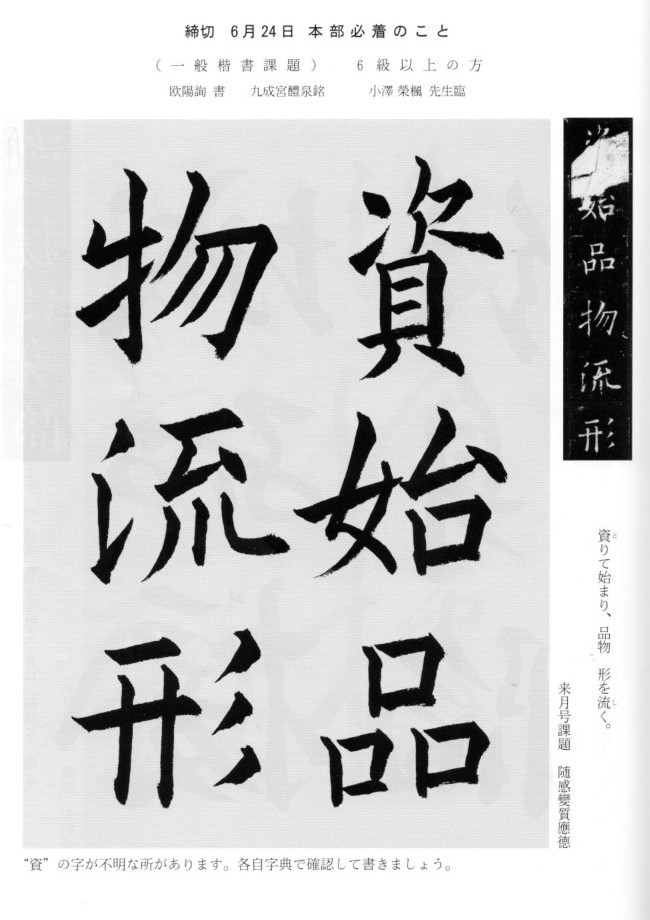 締切 6月24日 本部必着のこと
（一般楷書課題） 6級以上の方
欧陽詢 書 九成宮醴泉銘 小澤 榮楓 先生臨
資始品
物流形
始品物流形
資りて始まり、品物 形を流く。
と
し
来月号課題 随感變質應德
“資”の字が不明な所があります。各自字典で確認して書きましょう。